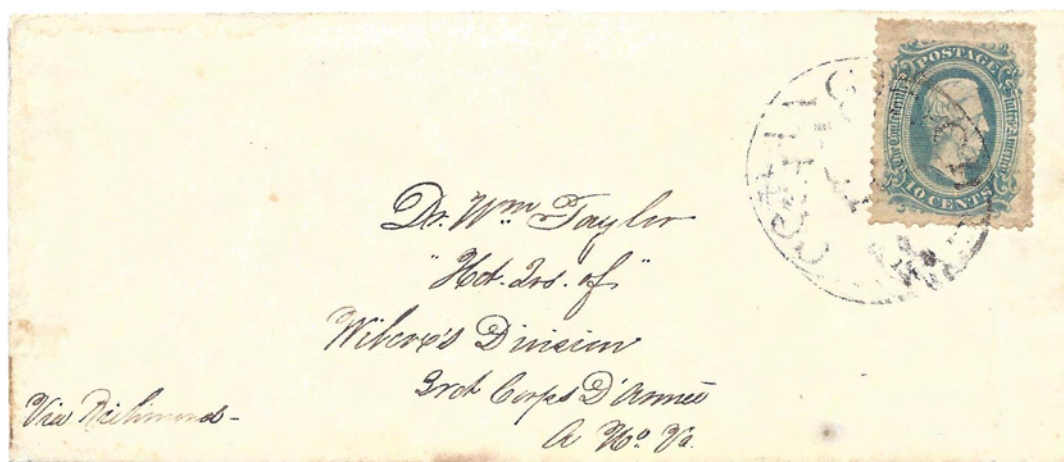 POSTAGE
The Confederate States of America
10 CENTS
Dr. Wm Taylor
"Hd. Qrs. of"
Wilcox's Division
3rd Corps D'Armée
A No. Va.
Via Richmond-